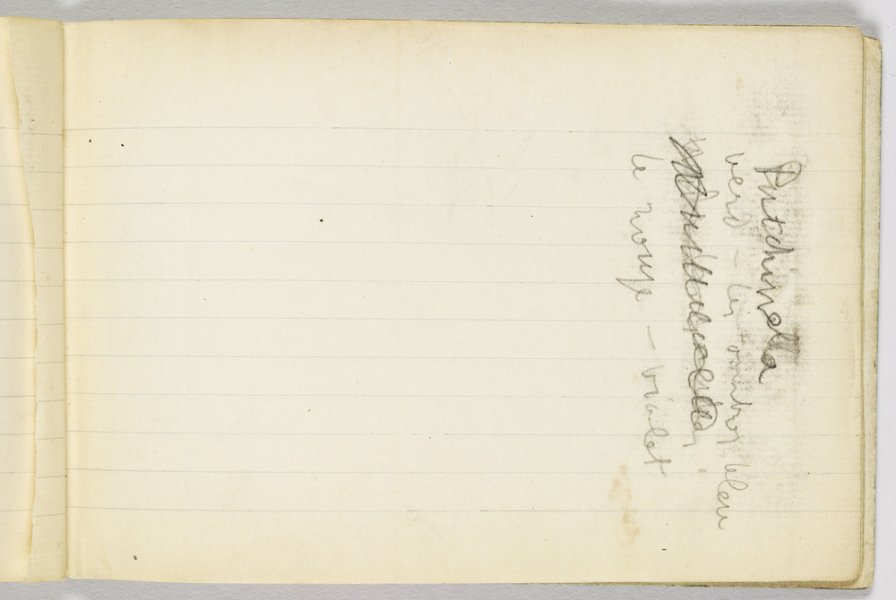 Putchinella
vert - les ombres bleu
le rouge - violet